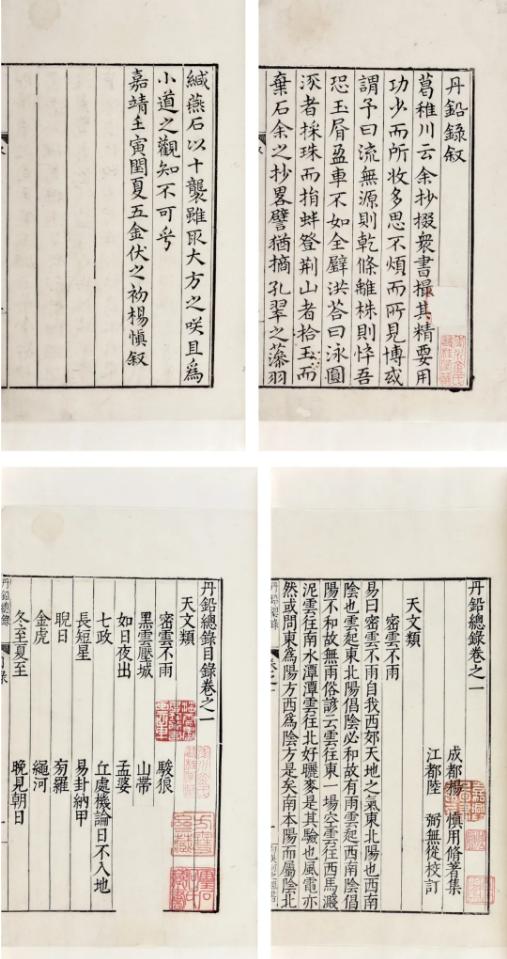 丹鉛錄叙
葛稚川云余抄掇衆書撮其精要用
功少而所收多思不煩而所見博或
謂予曰流無源則乾條離株則悴吾
恐玉屑盈車不如全璧洪荅曰泳圓
流者採珠而捐蚌登荆山者拾玉而
棄石余之抄畧譬猶摘孔翠之藻羽
緘燕石以十襲雖取大方之咲且爲
小道之觀知不可乎
嘉靖壬寅閏夏五金伏之初楊慎叙
丹鉛總錄卷之一
成都楊 慎用修著集
江都陸 弼無從校訂
天文類
密雲不雨
易曰密雲不雨自我西郊天地之氣東北陽也西南
陰也雲起東北陽倡陰必和故有雨雲起西南陰倡
陽不和故無雨俗諺云雲往東一場空雲往西馬濺
泥雲往南水潭潭雲往北好曬麥是其驗也風電亦
然或問東爲陽方西爲陰方是矣南本陽而屬陰北
丹鉛總錄
丹鉛總錄目錄卷之一
天文類
密雲不雨 駿狼
黑雲壓城 山帶
如日夜出 孟婆
七政 丘處機論日不入地
長短星 易卦納甲
晲日 羅
金虎 繩河
冬至夏至 晚見朝日
丹鉛總錄